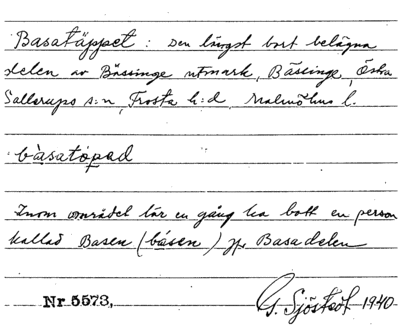 Basatäppet: Den längst bort belägna
delen av Bässinge utmark, Bässinge, Östra
Sallerups s:n, Frosta h:d, Malmöhus l.
bàsatópad
Inom området lär en gång ha bott en person
kallad Basen (básen) jfr Basadelen
Nr 5573, G. Sjöstedt 1940